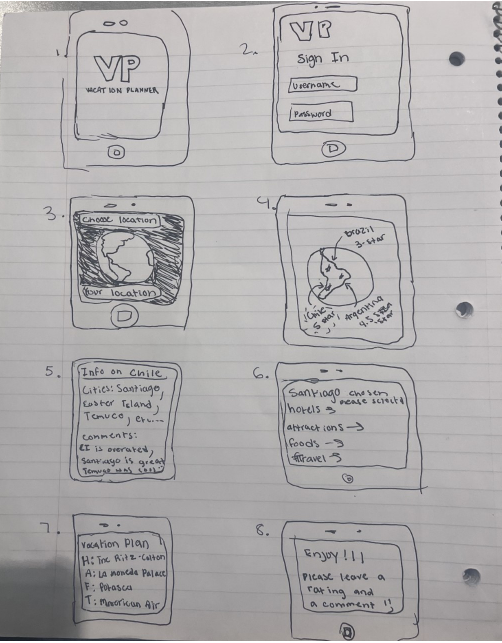 1.
VP
VACATION PLANNER
2.
VP
Sign In
Username
Password
3.
Choose location
Your location
4.
brazil
3-star
Chile
5 star
Argentina
4.5
-star
5.
Info on Chile
Cities: Santiago,
Easter Island,
Temuco, etc...
comments:
EI is overated,
Santiago is great
Temuco was cool
6.
Santiago chosen
please select
hotels →
attractions →
foods →
travel →
7.
Vacation Plan
H: The Ritz-Calton
A: La moneda Palace
F:
T: Air
8.
Enjoy!!!
Please leave a
rating and
a comment !!